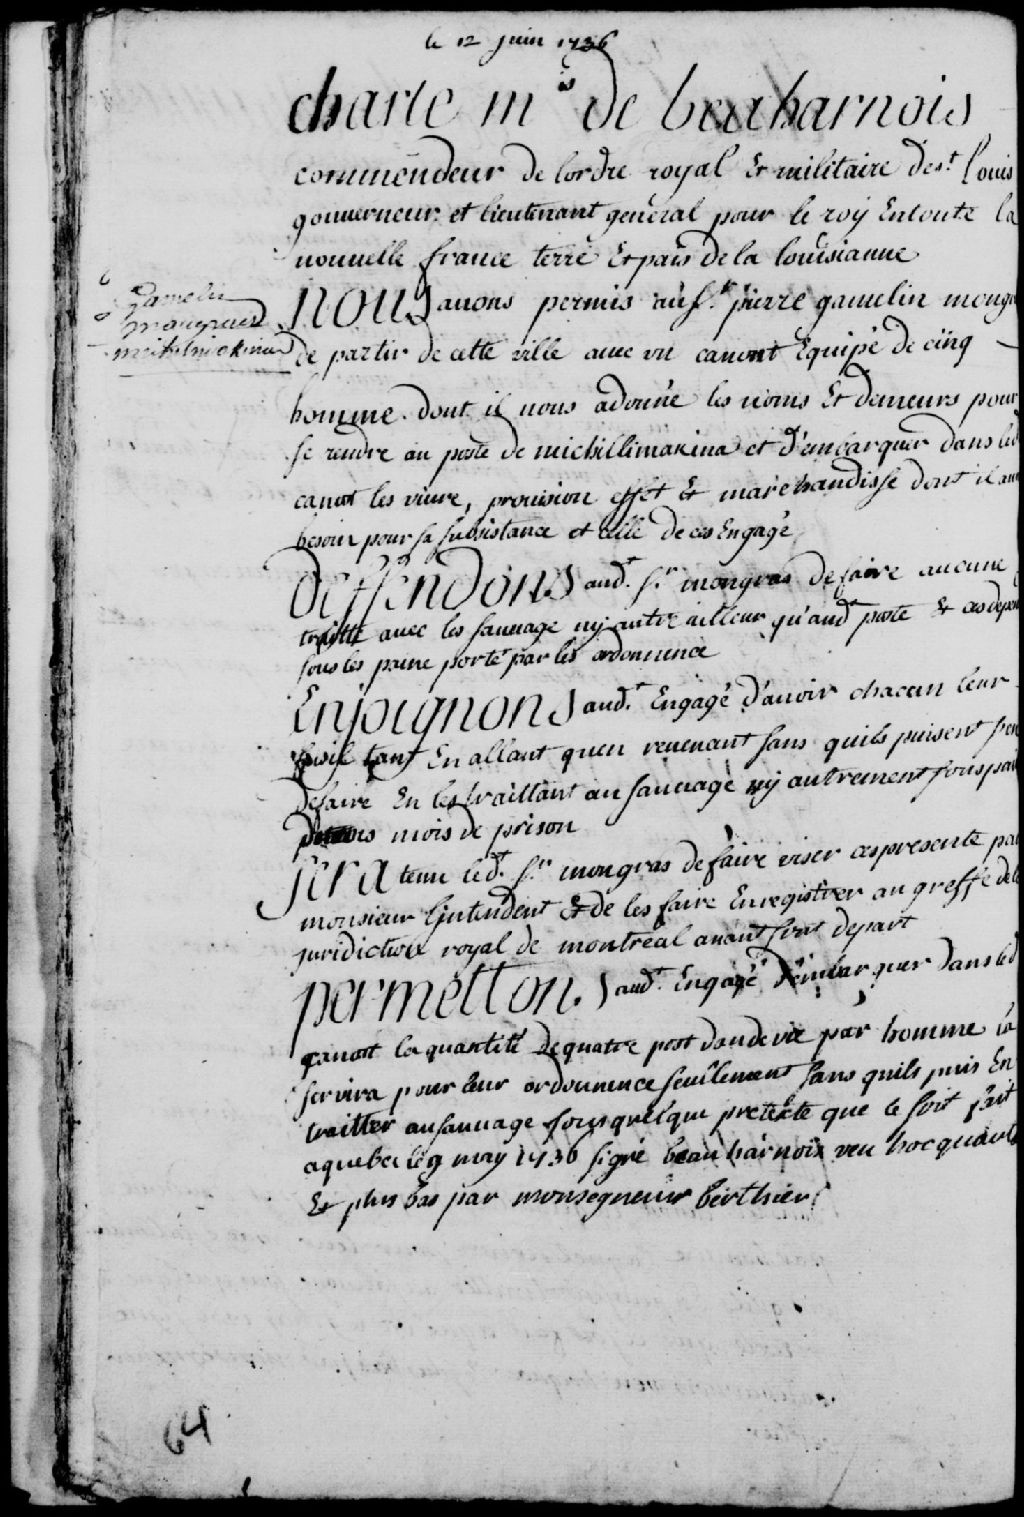 le 12 juin 1736
charle m.is de beauharnois
commendeur de lordre royal Et militaire de s.t Louis
gouuerneur et lieutenant general pour le roy Entoute la
nouuelle france terre Et païs de la louisianne
gamelin
mongras
michilimakina
Nous auons permis au s.r pierre gamelin mongr
de partir de cette ville auec un canont Equipé de cinq
homme dont il nous adonné les noms Et demeurs pour
se rendre au poste de michillimakina et d'embarquer dans led
canot les viure, prouision effet Et marchandisse dont il aura
besoin pour sa subsistance et celle de ces Engagé
Deffendons aud.t s.r mongras de faire aucune
traitte auec les sauuage ny autre ailleur qu'aud.t poste & ces depen
sous les paine porté par les ordonnence
Enjoignons aud.t Engagé d'auoir chacun leur
fusil tant En allant quen reuenant sans quils puisent sen
defaire En les traittant au sauuage ny autrement sous pai
mois de prison
sera tenu led.t s.r mongras de faire viser ces presente par
monsieur Lintendent & de les faire Enregistrer au greffe de la
juridiction royal de montreal auant son depart
permettons aud.t Engagé d'embarquer dans led
canot la quantité de quatre post deaudevie par homme la
servira pour leur ordonnence seullement sans quils puis En
traitter au sauuage sous quelque pretexte que ce soit fait
aquebec le 9 may 1736 signé beauharnois veu hocquart
Et plus bas par monsegneur berthier
64